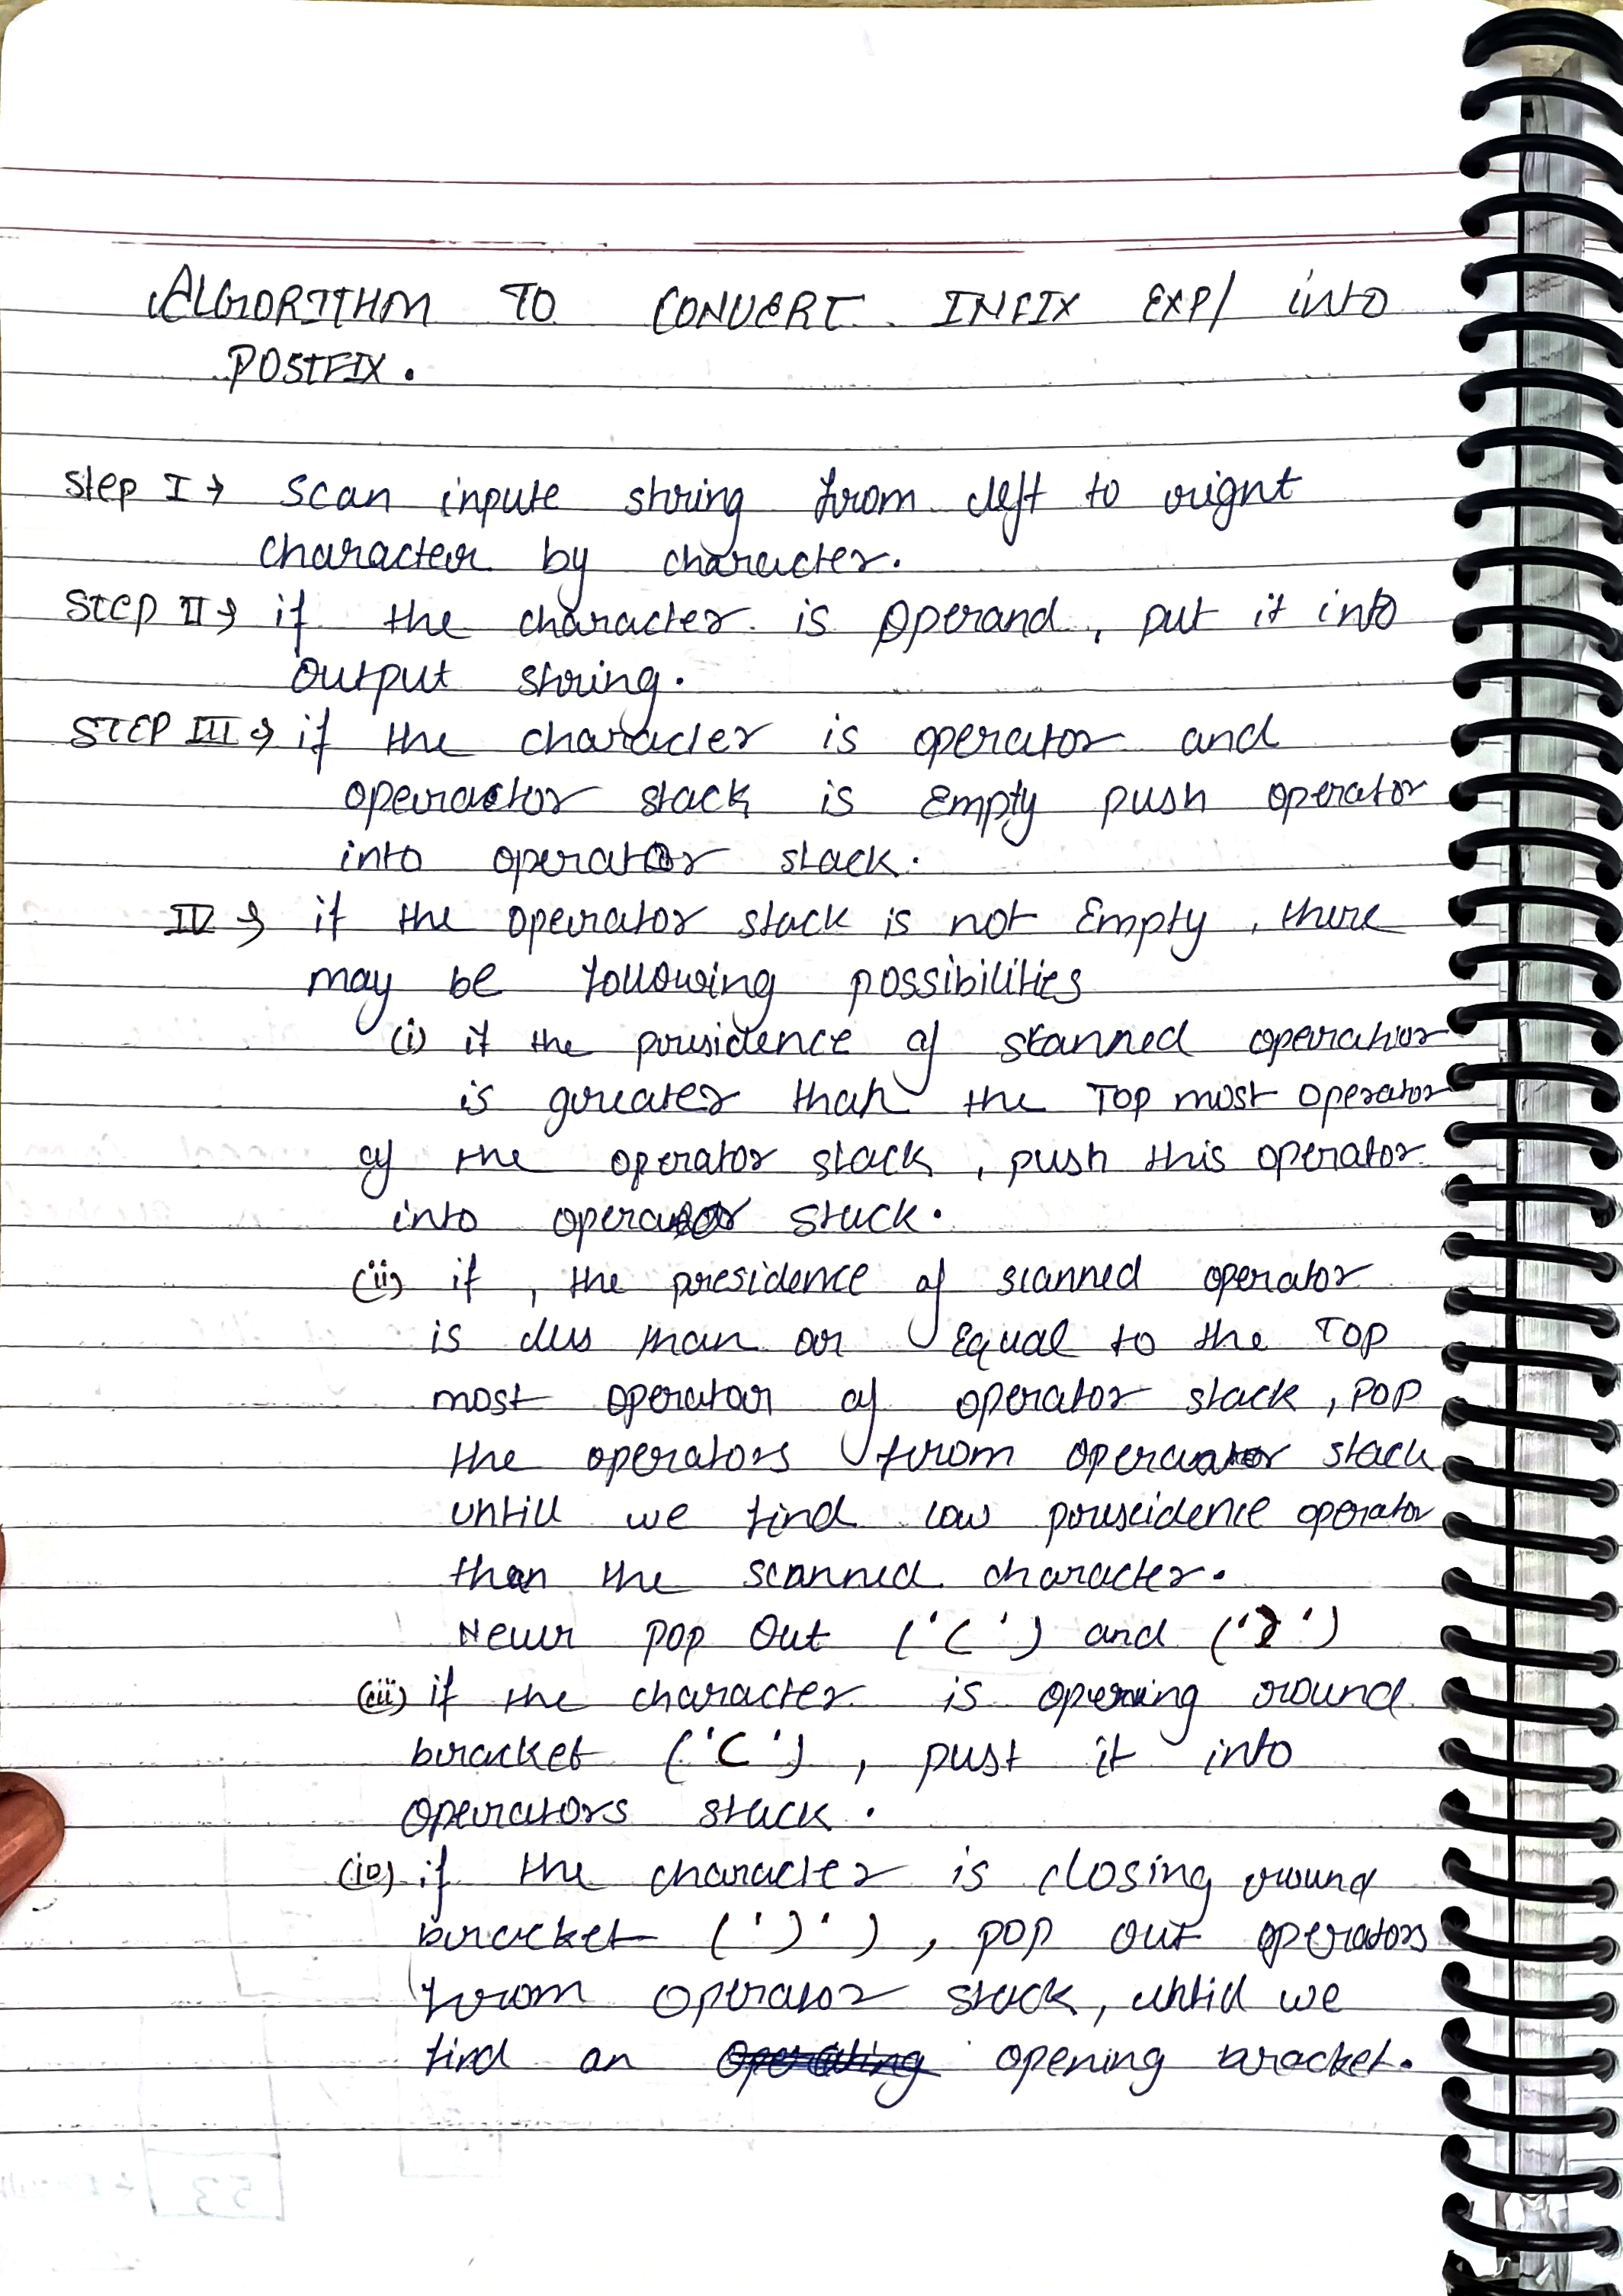 ALGORITHM TO CONVERT INFIX EXP/ INTO
POSTFIX.
Step I → Scan inpute string from left to right
character by character.
STEP II → if the character is operand, put it into
output string.
STEP III → if the character is operator and
operator stack is Empty push operator
into operator stack.
IV → if the operator stack is not Empty, there
may be following possibilities
(i) if the presidence of scanned operator
is greater than the TOP most operator
of the operator stack, push this operator
into operator stack.
(ii) if, the presidence of scanned operator
is less than or Equal to the TOP
most operator of operator stack, POP
the operators from operator stack
untill we find low preseidence operator
than the scanned character.
Never pop out ('(') and (')')
(iii) if the character is opening round
bracket ('('), pust it into
operators stack.
(iv) if the character is closing round
bracket (')'), pop out operators
from operator stack, untill we
find an opening bracket.
53